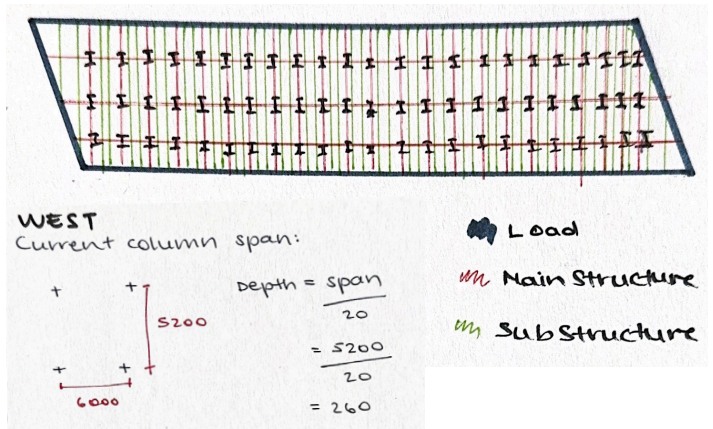 WEST
Current column span:
5200
6000
Depth = span
20
= 5200
20
= 260
Load
Main Structure
Sub Structure